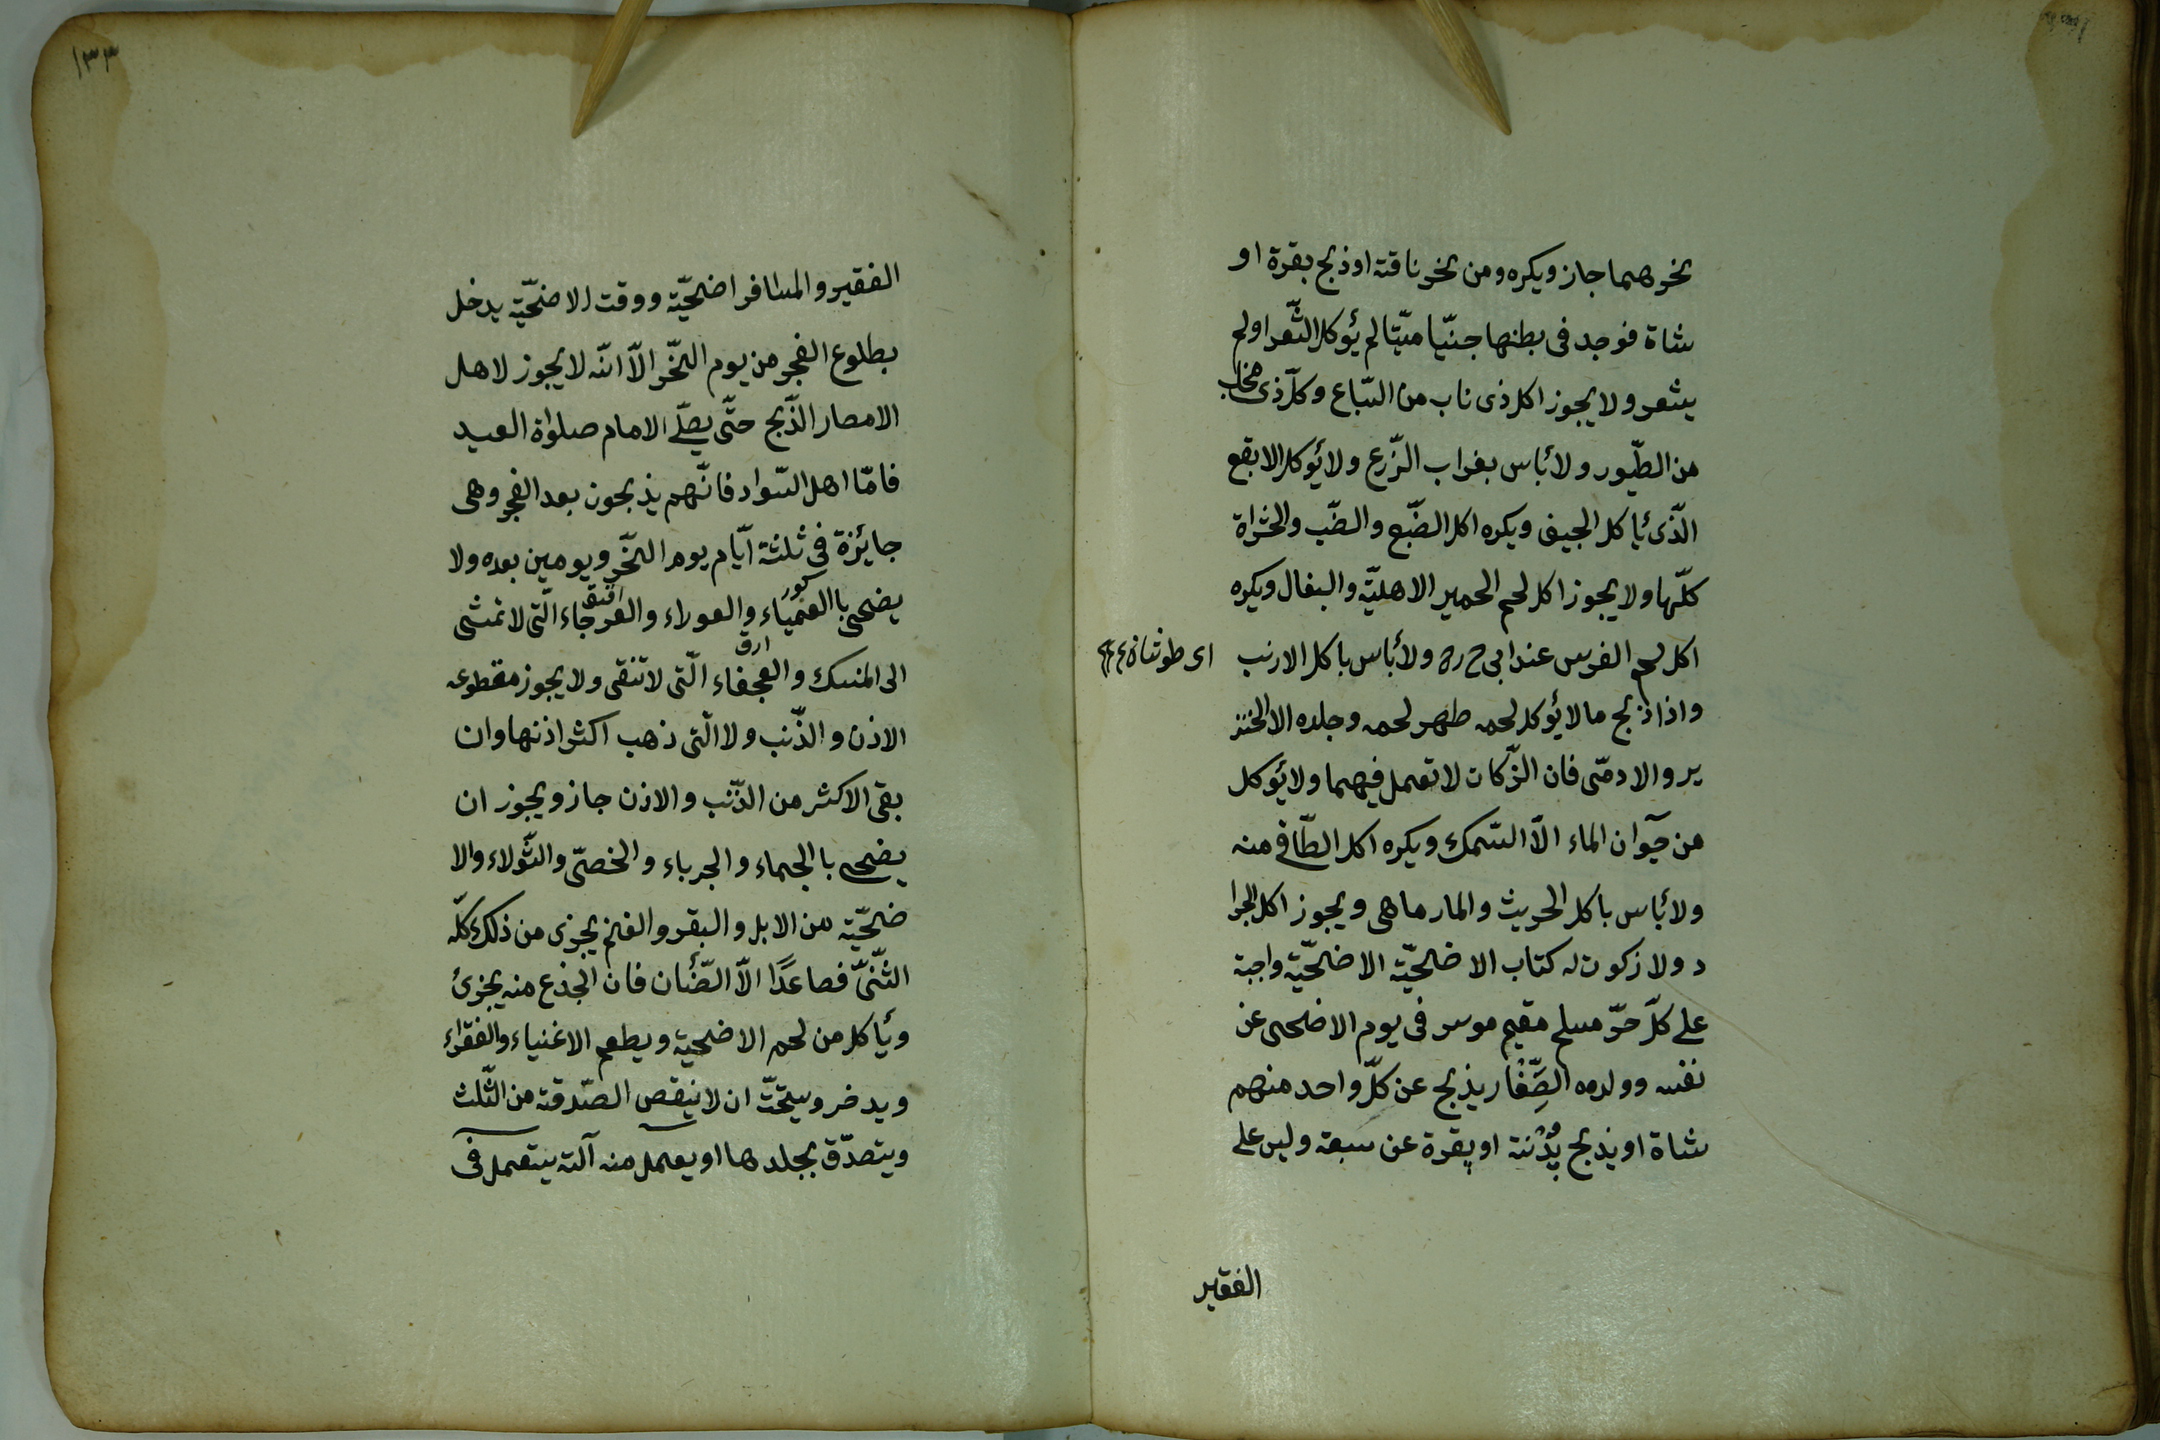 نحرهما جاز ويكره ومن نحر ناقة او ذبح بقرة او
شاة فوجد فى بطنها جنّيا ميّتا لم يؤكل اشّعر او لم
يشعر ولا يجوز اكل ذى ناب من السّباع وكلّ ذى مخاب
من الطّيور ولا بأس بغراب الزّرع ولا يؤكل الابقع
الّذى يأكل الجيف ويكره اكل الضّبع والضّب والحشراة
كلّها ولا يجوز اكل لحم الحمير الاهليّة والبغال ويكره
اكل لحم الفرس عند ابى ح ره ولا بأس باكل الارنب
اى طوشان
واذا ذبح ما لا يؤكل لحمه طهر لحمه وجلده الا الخنز
ير والادمّى فان الزّكات لا تعمل فيهما ولا يؤكل
من حيوان الماء الاّ السّمك ويكره اكل الطّافى منه
ولا بأس باكل الجريث والمارماهى ويجوز اكل الجرا
د ولا زكوت له كتاب الاضحيّة الاضحيّة واجبة
على كلّ حرّ مسلم مقيم موسر فى يوم الاضحى عن
نفسه وولده الصِّغار يذبح عن كلّ واحد منهم
شاة او يذبح بدنة او بقرة عن سبعة وليس على
الفقير
١٣٣
الفقير والمسافر اضحيّة ووقت الاضحيّة يدخل
بطلوع الفجر من يوم النّحر الاّ انّه لا يجوز لاهل
الامصار الذّبح حتّى يصلّى الامام صلوة العيد
فامّا اهل السّواد فانّهم يذبحون بعد الفجر وهى
جايزة فى ثلثة ايّام يوم النّحر ويومين بعده ولا
كور
يضحى باالعمياء والعوراء والعرجاء الّتى لا تمشى
ارق
الى المنسك والعجفاء الّتى لا تنقى ولا يجوز مقطوعه
الاذن والذّنب ولا الّتى ذهب اكثر اذنها وان
بقى الاكثر من الذّنب والاذن جاز ويجوز ان
يضحى باالجماء والجرباء والخصىّ والثّولاء والا
ضحيّة من الابل والبقر والغنم يجزى من ذلك كلّه
الثّنىّ فصاعدًا الاّ الضّأن فان الجذع منه يجزئ
ويأكل من لحم الاضحية ويطعم الاغنياء والفقراء
ويدخر ويستحبّ ان لا ينقص الصّدقة من الثّلث
ويتصدّق بجلدها او يعمل منه آلة يستعمل فى